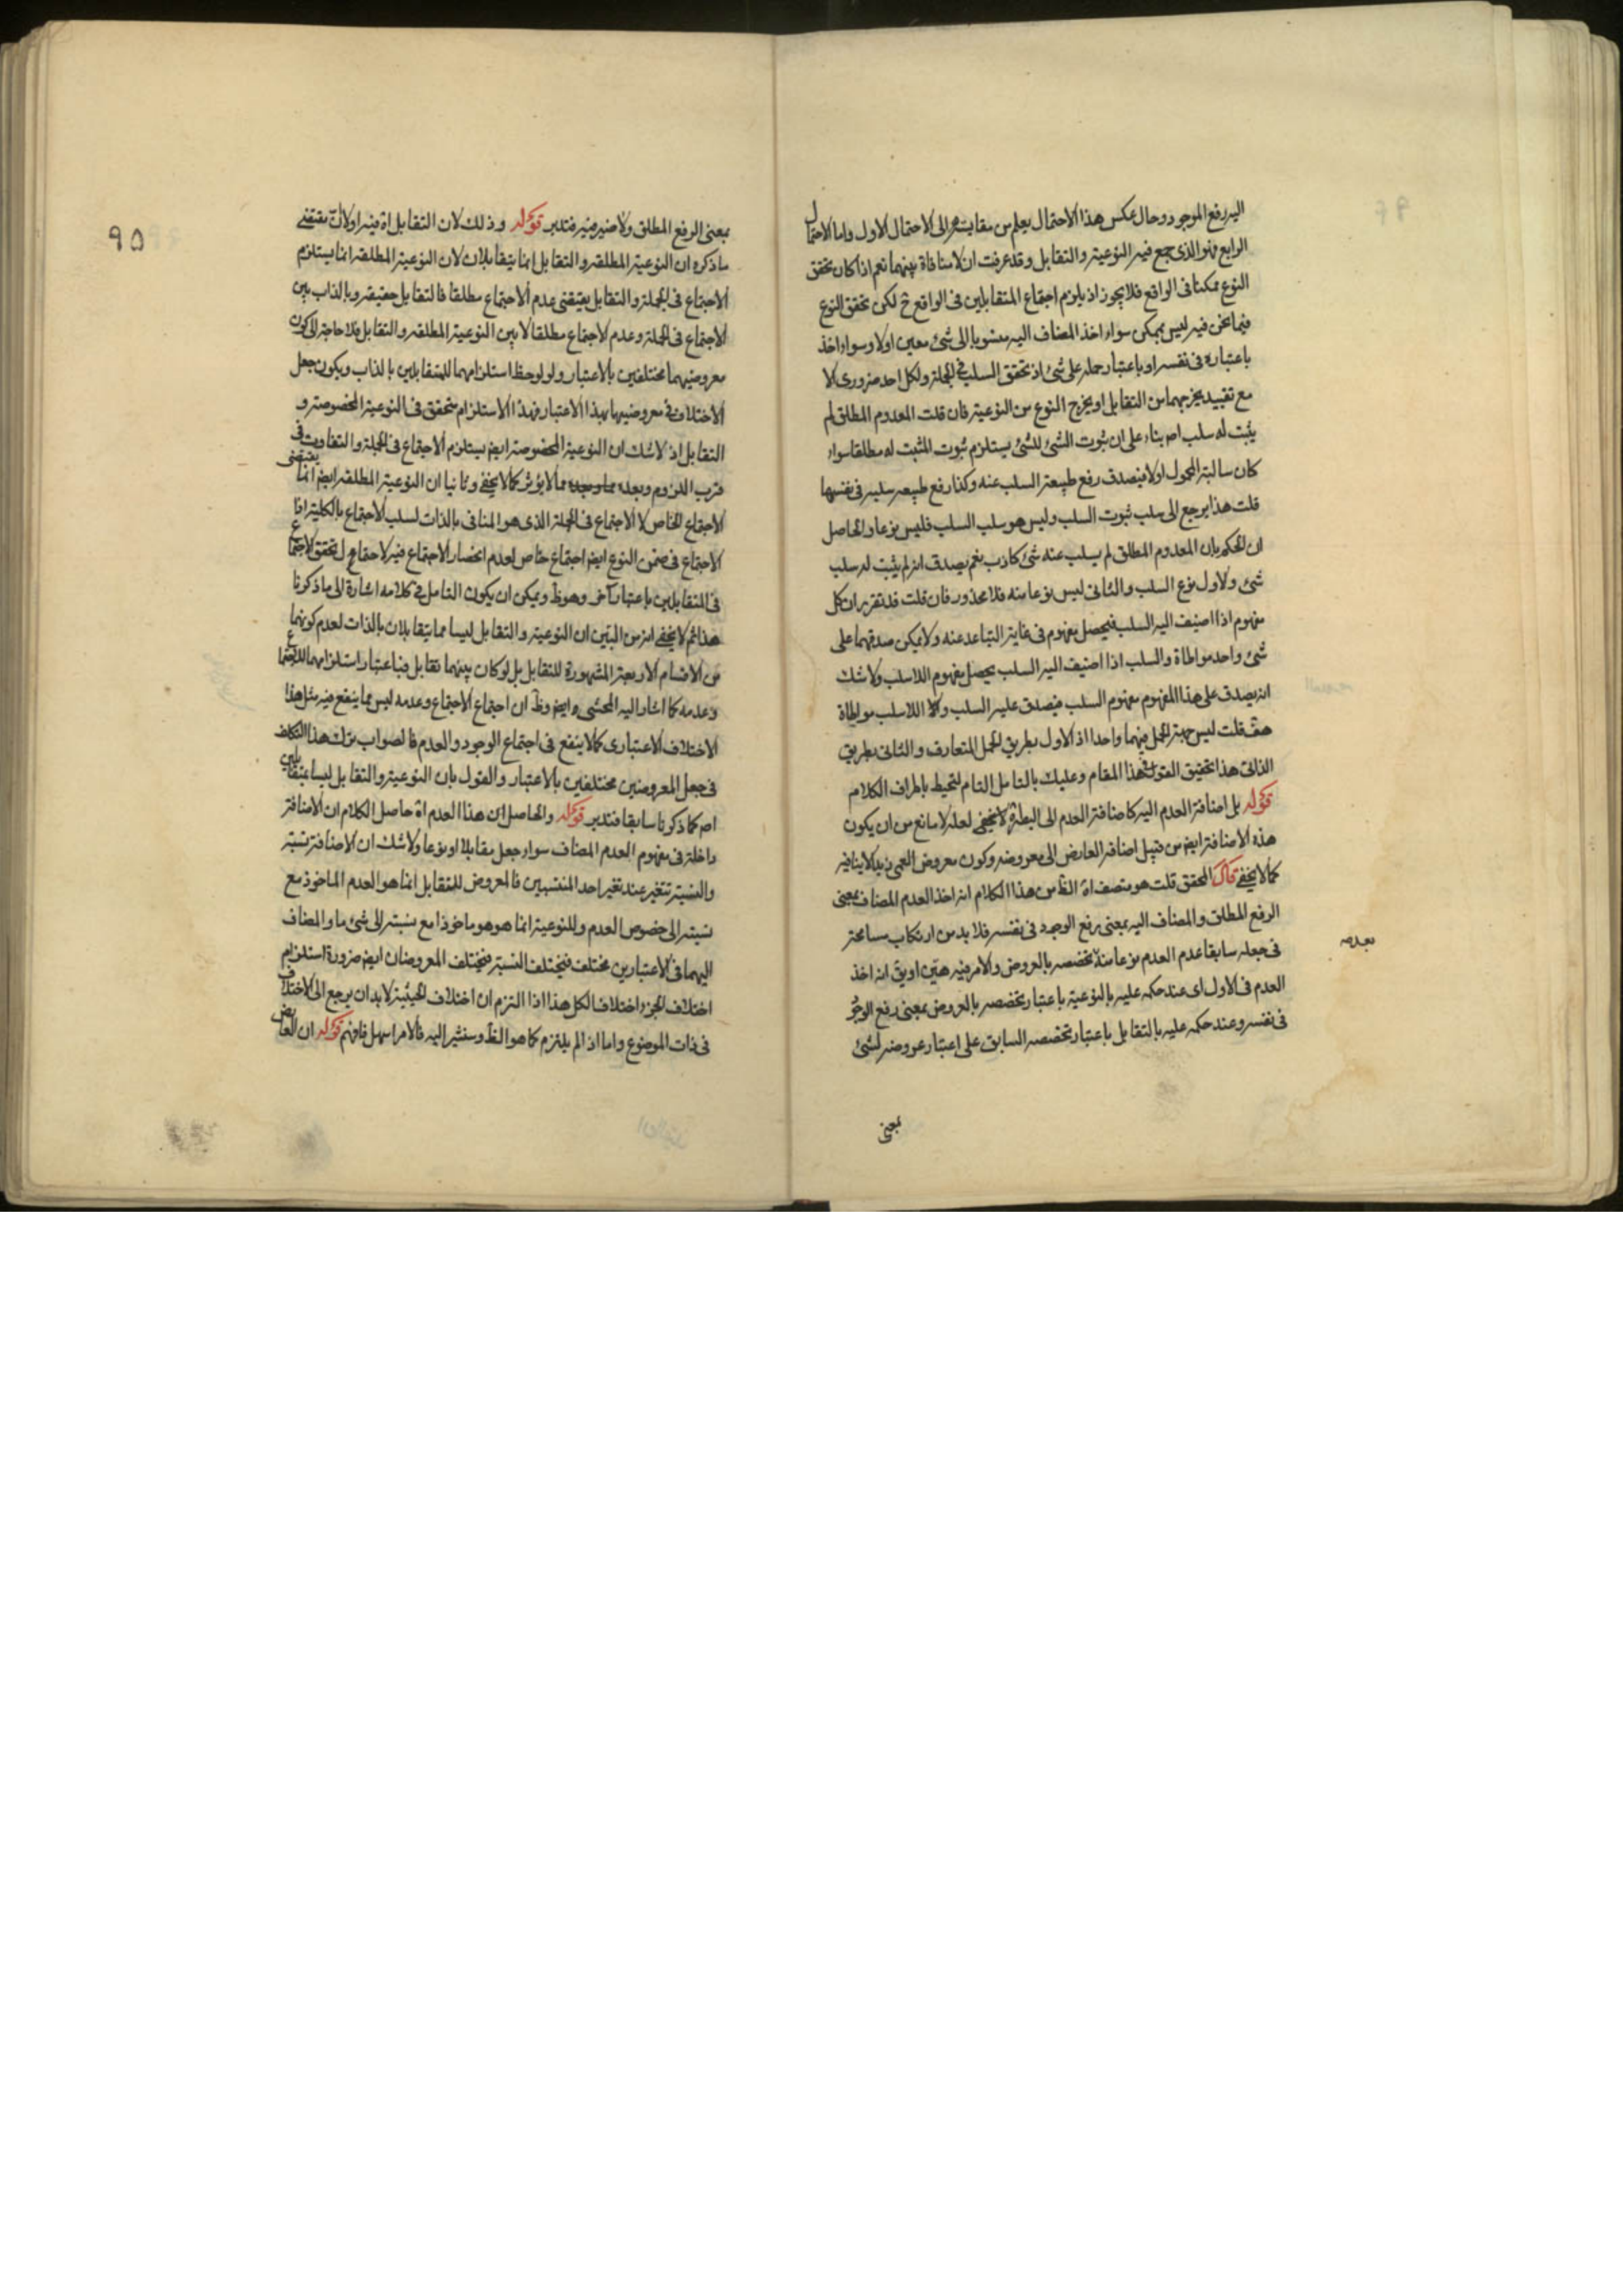 اليه رفع الموجود وحال عكس هذا الاحتمال يعلم من مقايسته الى الاحتمال الاول واما الاحتمال
الرابع فهو الذى جمع فيه النوعية والتقابل وقد عرفت ان لا منافاة بينهما نعم اذا كان تحقق
النوع ممكنا فى الواقع فلا يجوز اذ يلزم اجتماع المتقابلين فى الواقع ح لكن تحقق النوع
فيما نحن فيه ليس بممكن سواء اخذ المضاف اليه منسوبا الى شئ معين اولا وسواء اخذ
باعتباره فى نفسه او باعتبار حمله على شئ اذ تحقق السلب فى الجملة ولكل احد ضرورى لا
مع تقييد يخرجهما من التقابل او يخرج النوع من النوعية فان قلت المعدوم المطلق لم
يثبت له سلب اصلا بناء على ان ثبوت الشئ للشئ يستلزم ثبوت المثبت له مطلقا سواء
كان سالبة المحمول اولا فيصدق رفع طبيعة السلب عنه وكذا رفع طبيعه سلبه فى نفسها
قلت هذا يرجع الى سلب ثبوت السلب وليس هو سلب السلب فليس نوعا والحاصل
ان الحكم بان المعدوم المطلق لم يسلب عنه شئ كاذب نعم يصدق انه لم يثبت له سلب
شئ ولاول نوع السلب والثانى ليس نوعا منه فلا محذور فان قلت قد تقرر ان كل
مفهوم اذا اضيف اليه السلب فيحصل مفهوم فى غاية التباعد عنه ولا يمكن صدقهما على
شئ واحد مواطاة والسلب اذا اضيف اليه السلب يحصل مفهوم اللاسلب ولا شك
انه يصدق على هذا المفهوم مفهوم السلب فيصدق عليه السلب والا اللاسلب مواطاة
هف قلت ليس جهة الحمل فيهما واحدا اذ الاول بطريق الحمل المتعارف والثانى بطريق
الذاتى هذا تحقيق القول فى هذا المقام وعليك بالتامل التام لتحيط باطراف الكلام
قوله بل اضافة العدم اليه كاضافة العدم الى البصر لا يخفى لعله لا مانع من ان يكون
هذه الاضافة ايضا من قبيل اضافة العارض الى معروضه وكون معروض العمى زيد لا ينافيه
كما لا يخفى قال المحقق قلت هو متصف اه الظ من هذا الكلام انه اخذ العدم المضاف بمعنى
الرفع المطلق والمضاف اليه بمعنى رفع الوجود فى نفسه فلا بد من ارتكاب مسامحة
فى جعله سابقا عدم العدم نوعا منه لتخصصه بالعروض والامر فيه هين او يق انه اخذ
العدم فى الاول اى عند حكمه عليه بالنوعية باعتبار تخصصه بالعروض بمعنى رفع الوجود
فى نفسه وعند حكمه عليه بالتقابل باعتبار تخصصه السابق على اعتبار عروضه لشئ
بمعنى
٩٥
بمعنى الرفع المطلق ولا ضير فيه فتدبر قوله وذلك لان التقابل اه فيه اولا ان مقتضى
ما ذكره ان النوعية المطلقة والتقابل انما يتقابلان لان النوعية المطلقة انما يستلزم
الاجتماع فى الجملة والتقابل يقتضى عدم الاجتماع مطلقا فالتقابل حقيقة وبالذات بين
الاجتماع فى الجملة وعدم الاجتماع مطلقا لا بين النوعية المطلقة والتقابل فلا حاجة الى كون
معروضيهما مختلفين بالاعتبار ولو لوحظ استلزامهما للمتقابلين بالذات ويكون جعل
الاختلاف فى معروضيهما بهذا الاعتبار فهذا الاستلزام متحقق فى النوعية المخصوصة و
التقابل اذ لا شك ان النوعية المخصوصة ايضا يستلزم الاجتماع فى الجملة والتفاوت فى
قرب اللزوم وبعده مما لا يؤثر كما لا يخفى وثانيا ان النوعية المطلقة ايضا انما يقتضى
الاجتماع الخاص لا الاجتماع فى الجملة الذى هو المنافى بالذات لسلب الاجتماع بالكلية اذ
الاجتماع فى ضمن النوع ايضا اجتماع خاص لعدم انحصار الاجتماع فيه لتحقق الاجتماع
فى المتقابلين باعتبار آخر وهو ظ ويمكن ان يكون التامل فى كلامه اشارة الى ما ذكرنا
هذا ثم لا يخفى انه من البين ان النوعية والتقابل ليسا مما يتقابلان بالذات لعدم كونهما
من الاقسام الاربعة المشهورة للتقابل بل لو كان بينهما تقابل فباعتبار استلزامهما للاجتماع
وعدمه كما اشار اليه المحشى وايضا وظ ان اجتماع الاجتماع وعدمه ليس مما ينفع فيه مثل هذا
الاختلاف الاعتبارى كما لا ينفع فى اجتماع الوجود والعدم فالصواب ترك هذا التكلف
فى جعل المعروضين مختلفين بالاعتبار والقول بان النوعية والتقابل ليسا متقابلين
اصلا كما ذكرنا سابقا فتدبر قوله والحاصل ان هذا العدم اه حاصل الكلام ان الاضافة
داخلة فى مفهوم العدم المضاف سواء جعل مقابلا او نوعا ولا شك ان الاضافة نسبة
والنسبة تتغير عند تغير احد المنتسبين فالمعروض للتقابل انما هو العدم الماخوذ مع
نسبته الى خصوص العدم وللنوعية انما هو هو ماخوذا مع نسبته الى شئ ما والمضاف
اليهما فى الاعتبارين مختلف فيختلف النسبة فيختلف المعروضان ايضا ضرورة استلزام
اختلاف الجزء اختلاف الكل هذا اذا التزم ان اختلاف الحيثية لا بد ان يرجع الى الاختلاف
فى ذات الموضوع واما اذا لم يلتزم كما هو الظ وسنشير اليه فالامر سهل فافهم قوله ان العارض